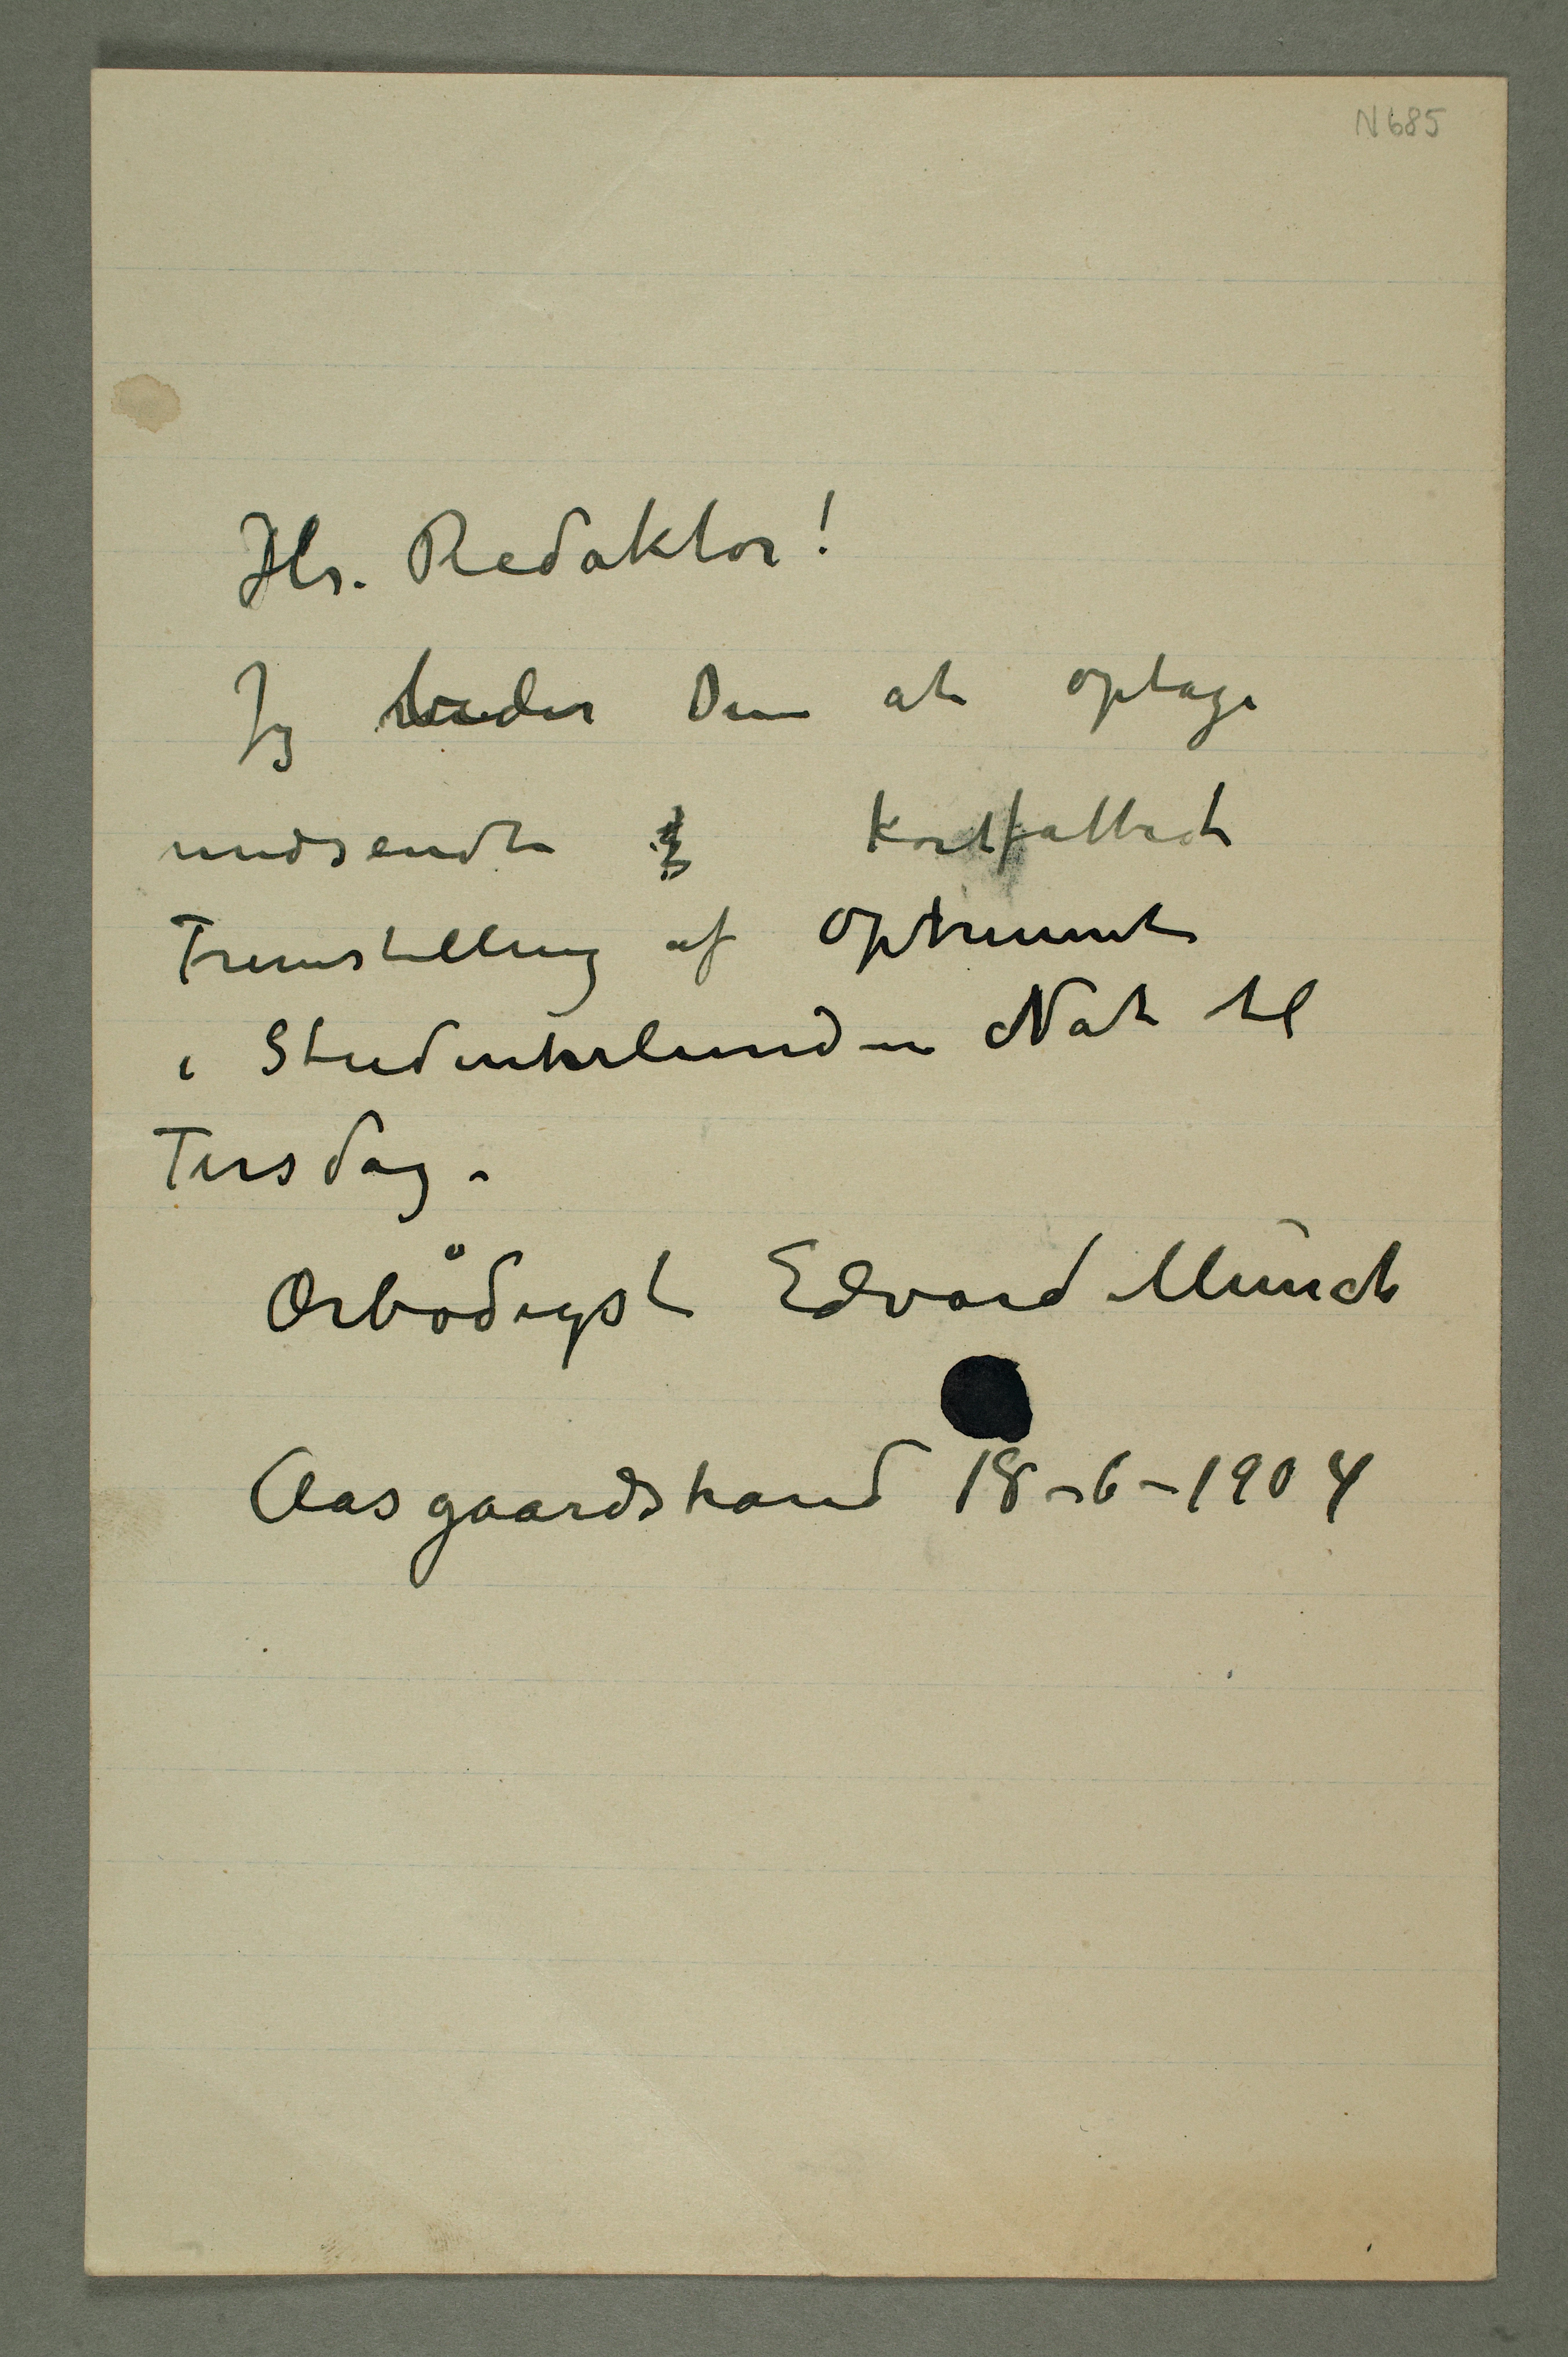 N 685
Hr. Redaktør!
Jeg beder Dem at optage
nedsendte kortfattede
Fremstilling af Optrinnet
i Studenterlunden Nat til
Tirsdag.
Ærbødigst Edvard Munch
Aasgaardstrand 18-6-1904